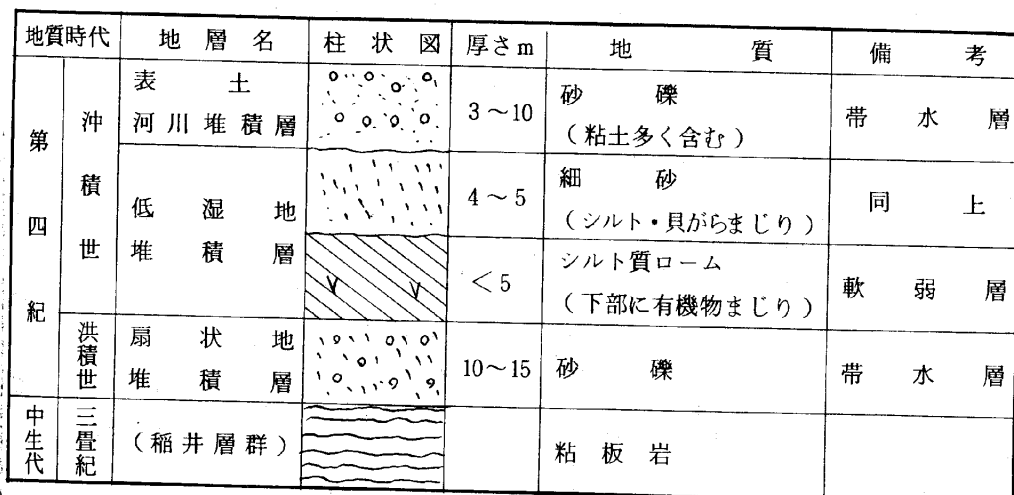 地質時代 地層名 柱状図 厚さm 地質 備考
第四紀
沖積世
表土
河川堆積層
3~10
砂礫
(粘土多く含む)
帯水層
低湿地
堆積層
4~5
細砂
(シルト・貝がらまじり)
同上
<5
シルト質ローム
(下部に有機物まじり)
軟弱層
洪積世
扇状地
堆積層
10~15
砂礫
帯水層
中生代
三畳紀
(稲井層群)
粘板岩